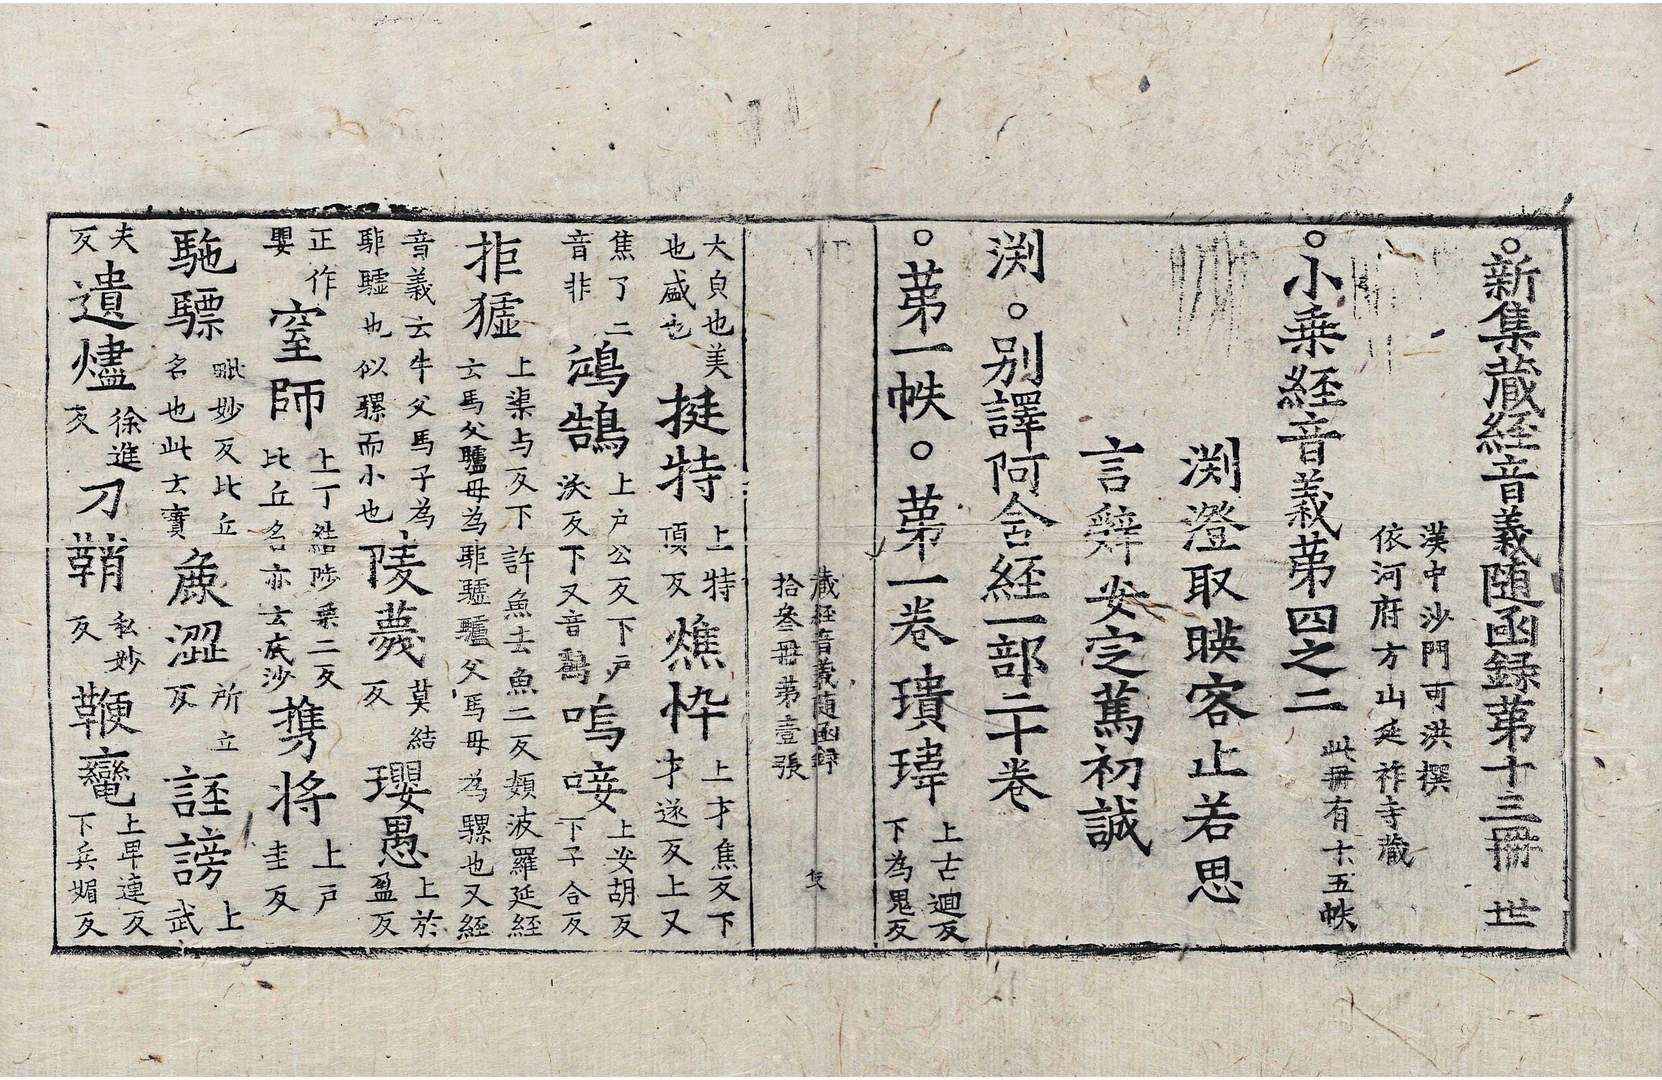 。新集藏経音義随函録第十三冊 丗
漢中沙門可洪撰
依河府方山延祚寺藏
。小乗経音義第四之二 此冊有十五帙
渕澄取暎容止若思
言辝安定篤初誠
渕。别譯阿含経一部二十卷
。苐一帙。苐一卷 璝瑋 上古迴反下為鬼反
藏経音義随函録
拾叁冊苐壹張
大貞也美也盛也 挺特 上特頂反 憔忰 上才焦反下才遂反上又
焦了二音非 鴻鵠 上户公反下户沃反下又音鵠 嗚唼 上安胡反下子合反
拒㹢 上渠与反下許魚去魚二反頗波羅延経云馬父驢母為駏驉驢父馬母為騾也又経
音義云牛父馬子為駏驉也似騾而小也 陵薎 莫結反 瓔愚 上於盈反
正作嬰 窒師 上丁結陟栗二反比丘名亦云底沙 攜将 上户圭反
駞驃 毗妙反比丘名也此云寶 麁澀 所立反 誣謗 上武
夫反 遺燼 徐進反 刀鞘 私妙反 鞭𪈼 上卑連反下兵媚反